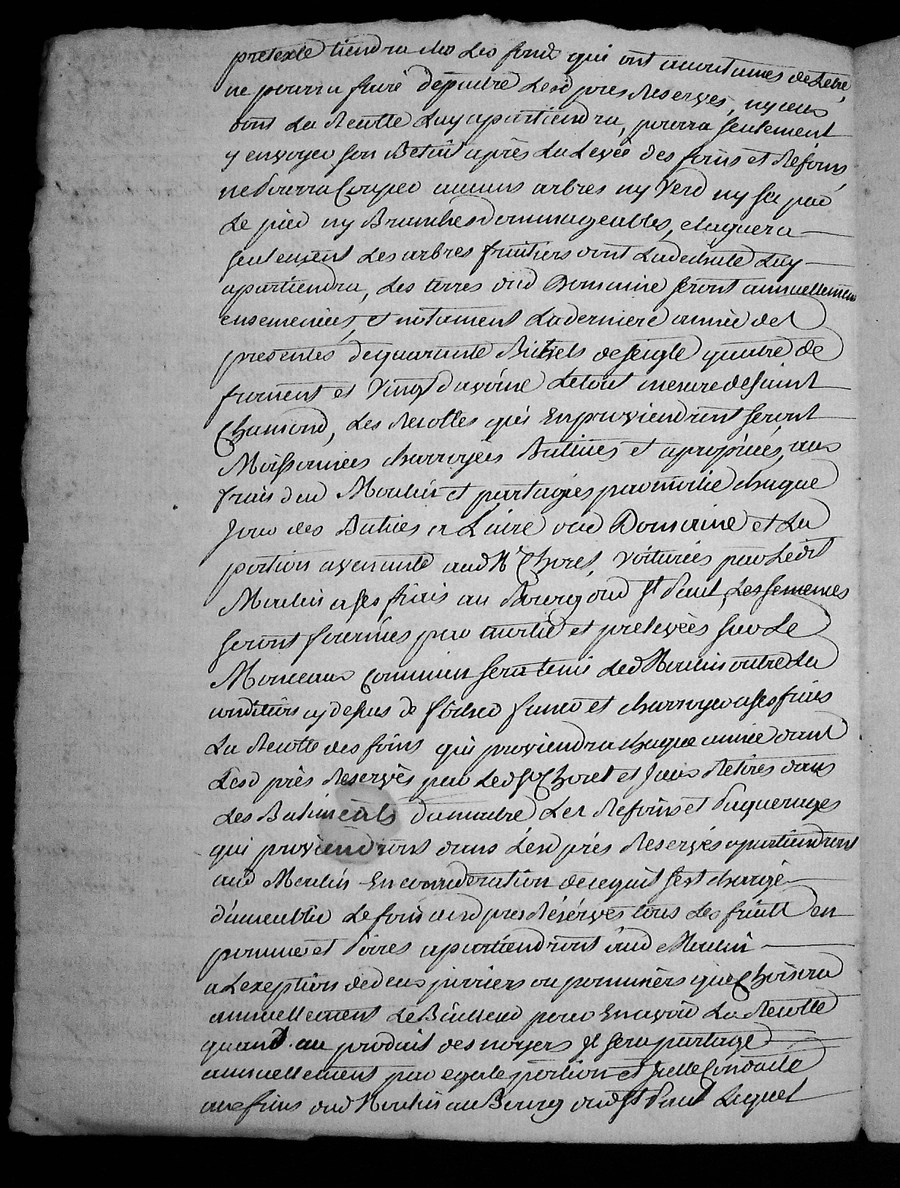 pretexte tiendra clos les fonds qui ont acoutumés de Letre,
ne pourra faire depaitre Lesd prés Reservés, ny ceux
dont La Recolte Luy apartiendra, pourra seulement
y envoyer son Betail après La Levée des foins et Refoins,
ne Pourra Couper aucuns arbres ny Verd ny sec par
Le pied ny Branches Dommageables, elaguera
seulement Les arbres fruitiers dont La
apartiendra, Les terres dud Domaine seront annuellement
ensemencées, et notament La derniere année des
presentes de quarante Bichets de seigle quatre de
froment et Vingt d'avoine Le tout mesure de saint
Chamond, Les Recoltes qui En proviendront seront
Moissonnées charroyées Battues et apropriées, aux
frais dud Moulin et partagées par moitié chaque
Jour des Batues a L'aire dud Domaine et La
portion avenante aud Sr Thoret, Voiturées par Ledit
Moulin a ses frais au Bourg dud St Paul, Les semences
seront fournies par moitié et prelevées sur Le
Monceaux commun sera tenu Led Moulin outre La
condition cy dessus de faucher faner et charroyer a ses frais
La Recolte des foins qui proviendra chaque année dans
Lesd prés Reservés par Led Sr Thoret et Iceux Retirés dans
Les Batiments du maitre Les Refoins et Paquerages
qui proviendront dans Lesd prés Reservés apartiendront
aud Moulin En consideration de ce quil s'est chargé
d'ameublir Le foin aud prés Résérvés tous Les fruits en
pomme et Poires apartiendront aud Moulin
a L'exeption de deux poiriers ou pommiers que Choisira
annuellement Le Bailleur pour En avoir La Recolte
quand au produit des noyers Il sera partagé
annuellement par egale portion et Icelle Conduite
aux frais dud Moulin au Bourg dud St Paul Lequel